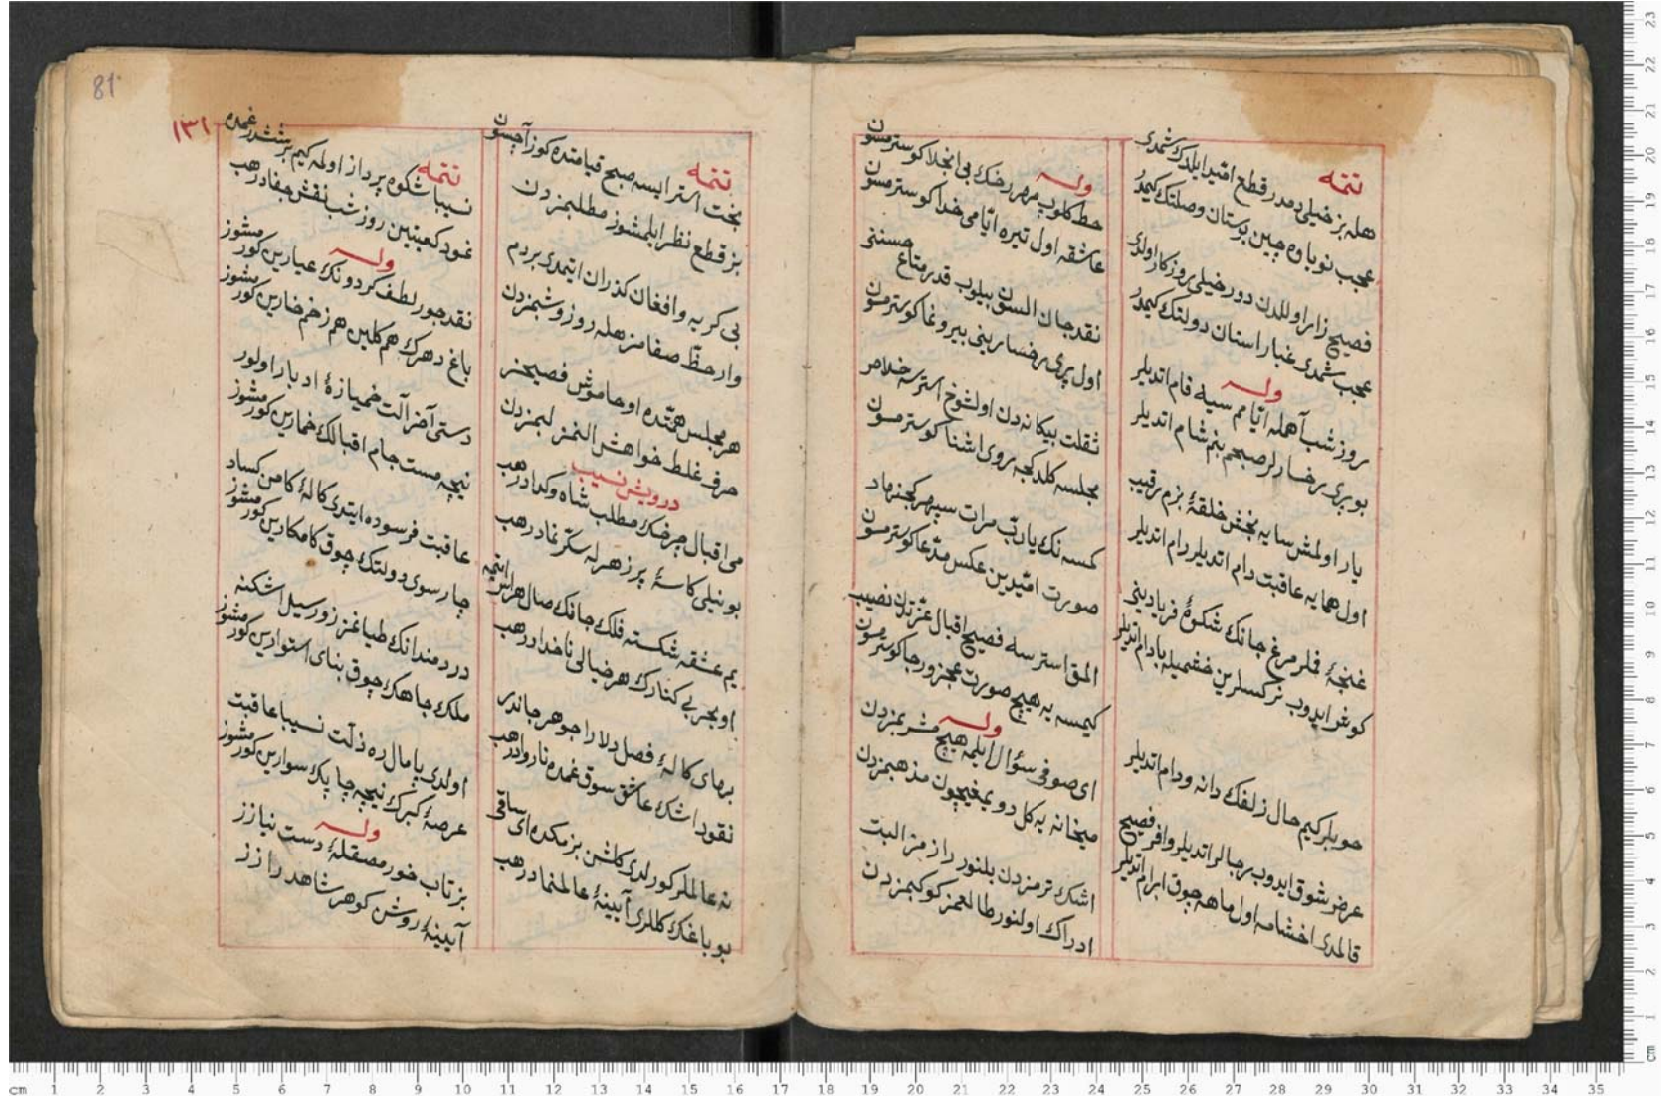 تتمه
هله بز خیلی دمدر قطع امید ایلدك شمدی
عجب نوباوه چین بوستان وصلتك كیمدر
فصیح زار اوللدن دور خیلی روزكار اولدی
عجب شمدی غبار استان دولتك كیمدر
وله
روز شب آهمله ایامم سیه فام اتدیلر
بو پری رخسارلر صبحم بنم شام اتدیلر
یار اولمش سایه بخش حلقهٔ بزم رقیب
اول همایه عاقبت دام اتدیلر رام اتدیلر
غنچهٔ فملر مرغ جانك شكوهٔ فریادینی
كوش ایدوب نركسلرین خشمیله بادام اتدیلر
حوبلر كیم حال زلفك دانه ودام اتدیلر
عرض شوق ایدوب رجالر اتدیلر وافر فصیح
قالمدی اخشامه اول ماهه چوق ابرام اتدیلر
وله
حط كلوب مهر رخك بی انجلا كوسترمسون
عاشقه اول تیره ایامی خدا كوسترمسون
نقد جان السون بیلوب قدر متاع حسننی
اول پری رخسارینی بیروغما كوسترمسون
ثقلت بیكانه دن اولشوخ استرسه خلاص
مجلسه كلدكجه روی اشنا كوسترمسون
كمسه نك یارب مرات سپهر كجنهاد
صورت امیدین عكس مدعا كوسترمسون
المق استرسه فصیح اقبال عزتدن نصیب
كیمسه یه هیچ صورت عجز ورجا كوسترمسون
وله
ای صوفی سؤال ایلمه هیچ مشربمزدن
میخانه یه كل دویمغیچون مذهبمزدن
اشك ترمزدن بلنور رازمز البت
ادراك اولنور طالعمز كوكبمزدن
تتمه
بخت استر ایسه صبح قیامتده كوز آچسون
بز قطع نظر ایلمشوز مطلبمزدن
بی كریه وافغان كذران ایتمدی بر دم
وار حظ صفامز هله روز وشبمزدن
هر مجلس همتده اوخاموش فصیحز
حرف غلط خواهش النمز لبمزدن
درویش نسیب
می اقبال چرخك مطلب شاه وكدادر هب
بو نیلی كاسهٔ پر زهرله سكر نمادر هب
یم عشقه شكسته فلك جانك صال هراس ایتمه
او بحر بی كنارك هر خیالی ناخدادر هب
بهای كالهٔ فصل دلارا جوهر جاندر
نقود اشك عاشق سوق غمده نارواد هب
نه عالملر كورلدی كلشن بزمكده ای ساقی
بو باغك كللری آیینهٔ عالمنمادر هب
۱۳۱
تتمه
نسیبا شكوه پرداز اولمه كیم بر ششدر غمده
غود كعبتین روز شب نقش جفادر هب
وله
نقد جور لطف كردونك عیارین كورمشوز
باغ دهرك هم كلین هم زخم خارین كورمشوز
دستی آخر آلت خمیازهٔ ادبار اولور
نیچه مست جام اقبالك خمارین كورمشوز
عاقبت فرسوده ایتدی كالهٔ كامن كساد
چارسوی دولتك چوق كامكارین كورمشوز
دردمندانك طیاغز زور سیل اشكنه
ملك جاهك چوق بنای استوارین كورمشوز
اولدی پامال ره ذلت نسیبا عاقبت
عرصهٔ كبرك نیچه چاپك سوارین كورمشوز
وله
بز تاب خور مصقلهٔ دست نیازز
آیینهٔ روشن كوهر شاهد رازز
81